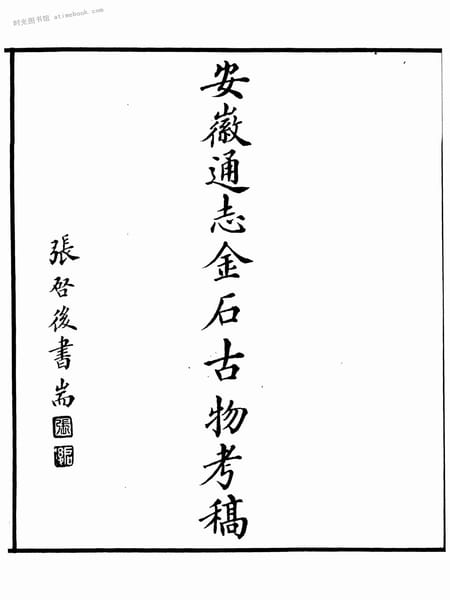 时光图书馆 · atimebook.com
安徽通志金石古物考稿
張啓後書耑